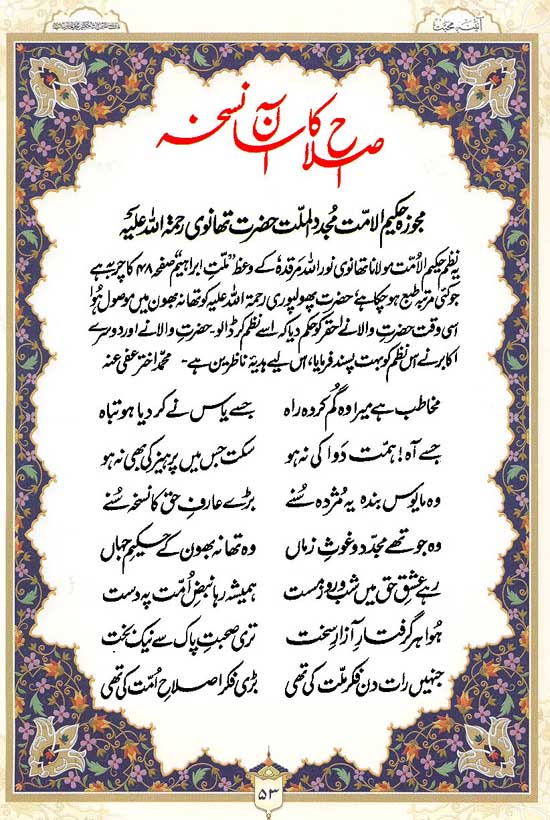 آئینۂ محبت
اصلاح کا آسان نسخہ
مجوزہ حکیم الامت مجدد الملت حضرت تھانوی رحمۃ اللہ علیہ
یہ نظم حکیم الامت مولانا تھانوی نور اللہ مرقدہٗ کے وعظ ”ملتِ ابراہیم“ صفحہ ۴۸ کا چربہ ہے
جو کئی مرتبہ طبع ہو چکا ہے، حضرت پھولپوری رحمۃ اللہ علیہ کو تھانہ بھون میں موصول ہُوا
اسی وقت حضرتِ والا نے احقر کو حکم دیا کہ اسے نظم کر ڈالو۔ حضرتِ والا نے اور دوسرے
اکابر نے اس نظم کو بہت پسند فرمایا، اس لیے ہدیۂ ناظرین ہے۔ محمد اختر عفی عنہ
مخاطب ہے میرا وہ گم کردہ راہ جسے یاس نے کر دیا ہو تباہ
جسے آہ! ہمّت دَوا کی نہ ہو سکت جس میں پرہیز کی بھی نہ ہو
وہ مایوس بندہ یہ مُژدہ سُنے بڑے عارفِ حق کا نسخہ سُنے
وہ جو تھے مجدّد و غوثِ زماں وہ تھانہ بھون کے حکیمِ جہاں
رہے عشقِ حق میں شب و روز مست ہمیشہ رہا نبضِ اُمّت پہ دست
ہُوا ہر گرفتارِ آزارِ سخت تری صحبتِ پاک سے نیک بخت
جنہیں رات دن فکرِ ملّت کی تھی بڑی فکر اصلاحِ اُمّت کی تھی
۵۳